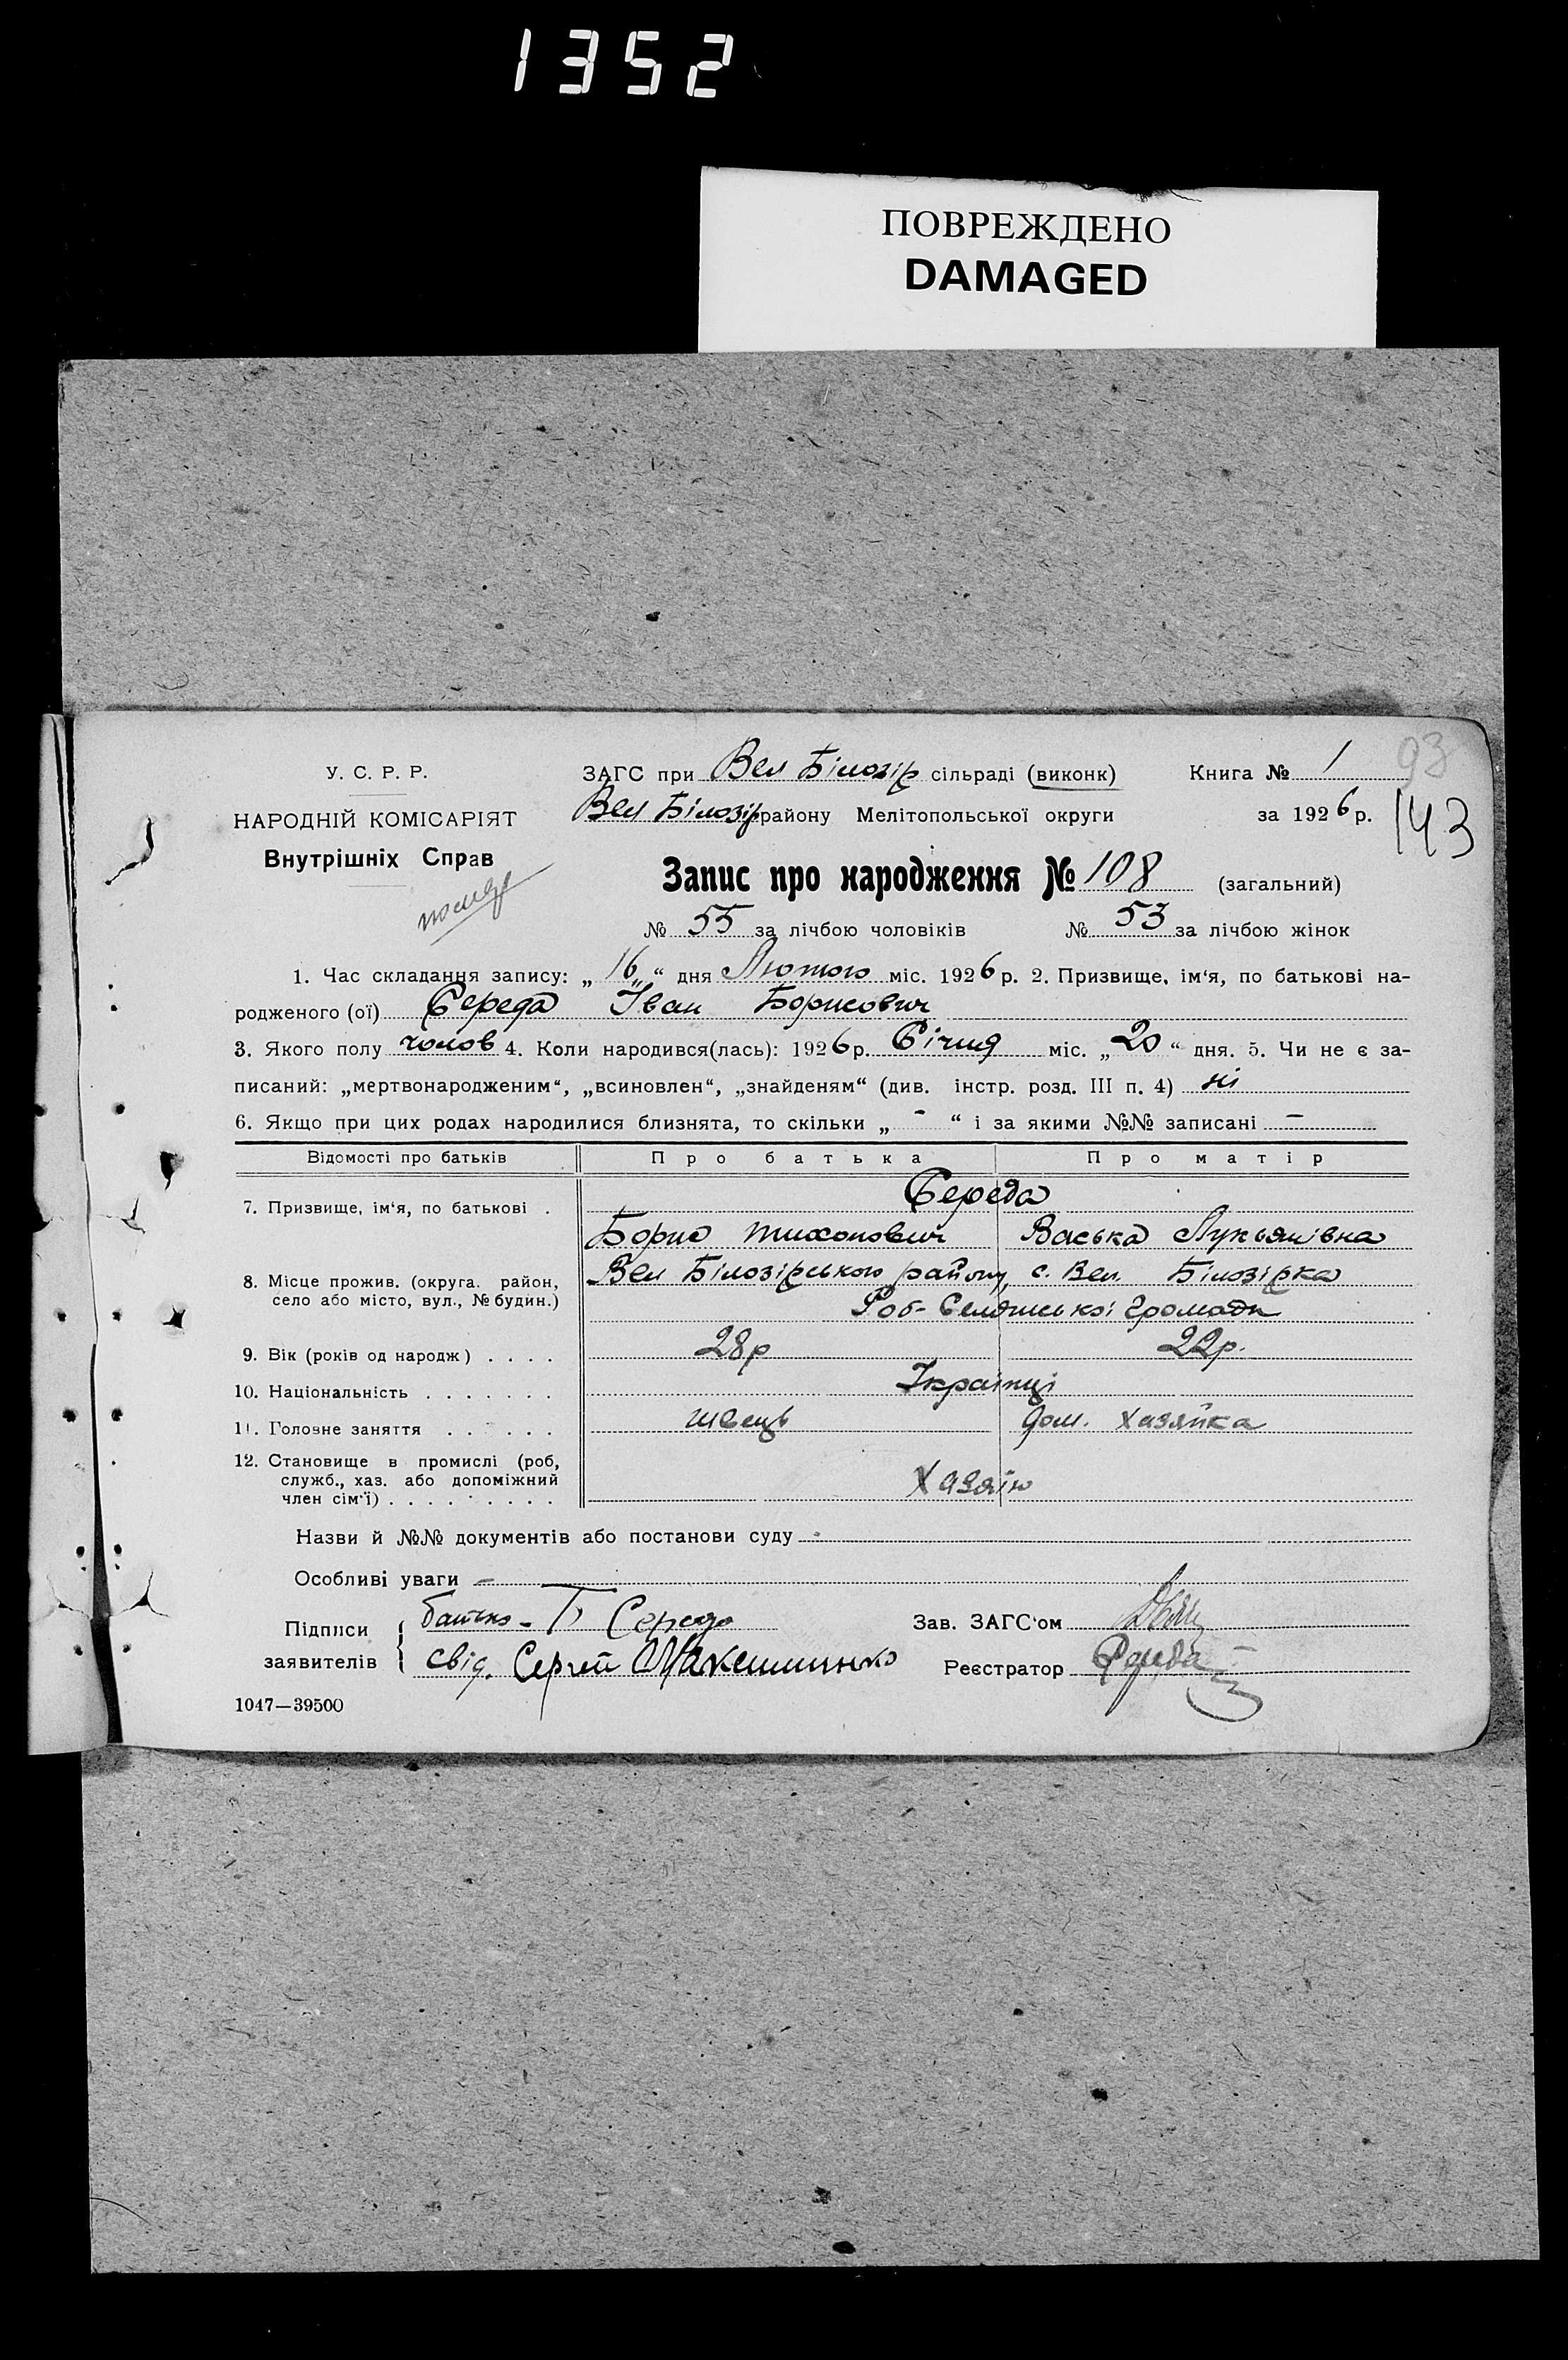 1352
ПОВРЕЖДЕНО
DAMAGED
93
143
У. С. Р. Р.
НАРОДНІЙ КОМІСАРІЯТ
Внутрішніх Справ
ЗАГС при Вел Білозір сільраді (виконк)
Вел Білозір району Мелітопольської округи
Книга № 1
за 1926 р.
Запис про народження № 108 (загальний)
№ 55 за лічбою чоловіків № 53 за лічбою жінок
1. Час складання запису: „16“ дня Лютого міс. 1926 р. 2. Призвище, ім'я, по батькові на-
родженого (ої) Середа Іван Борисович
3. Якого полу чолов 4. Коли народився(лась): 1926 р. Січня міс. „20“ дня. 5. Чи не є за-
писаний: „мертвонародженим“, „всиновлен“, „знайденям“ (див. інстр. розд. III п. 4) ні
6. Якщо при цих родах народилися близнята, то скільки „ - “ і за якими №№ записані —
Відомості про батьків Про батька Про матір
7. Призвище, ім'я, по батькові . Середа
Борис Тихонович Васька Лукьянівна
8. Місце прожив. (округа. район, село або місто, вул., № будин.) Вел Білозірського району, с. Вел. Білозірка
Роб-Селянської Громади
9. Вік (років од народж) . . . . 28р 22р.
10. Національність . . . . . . . Українці
11. Головне заняття . . . . . . швець дом. хазяйка
12. Становище в промислі (роб,
служб., хаз. або допоміжний
член сім'ї) . . . . . . . . . Хазяін
Назви й №№ документів або постанови суду -
Особливі уваги —
Підписи заявителів { батько - Б Середа
свід. Сергей Максименко
Зав. ЗАГС'ом
Реєстратор
1047—39500